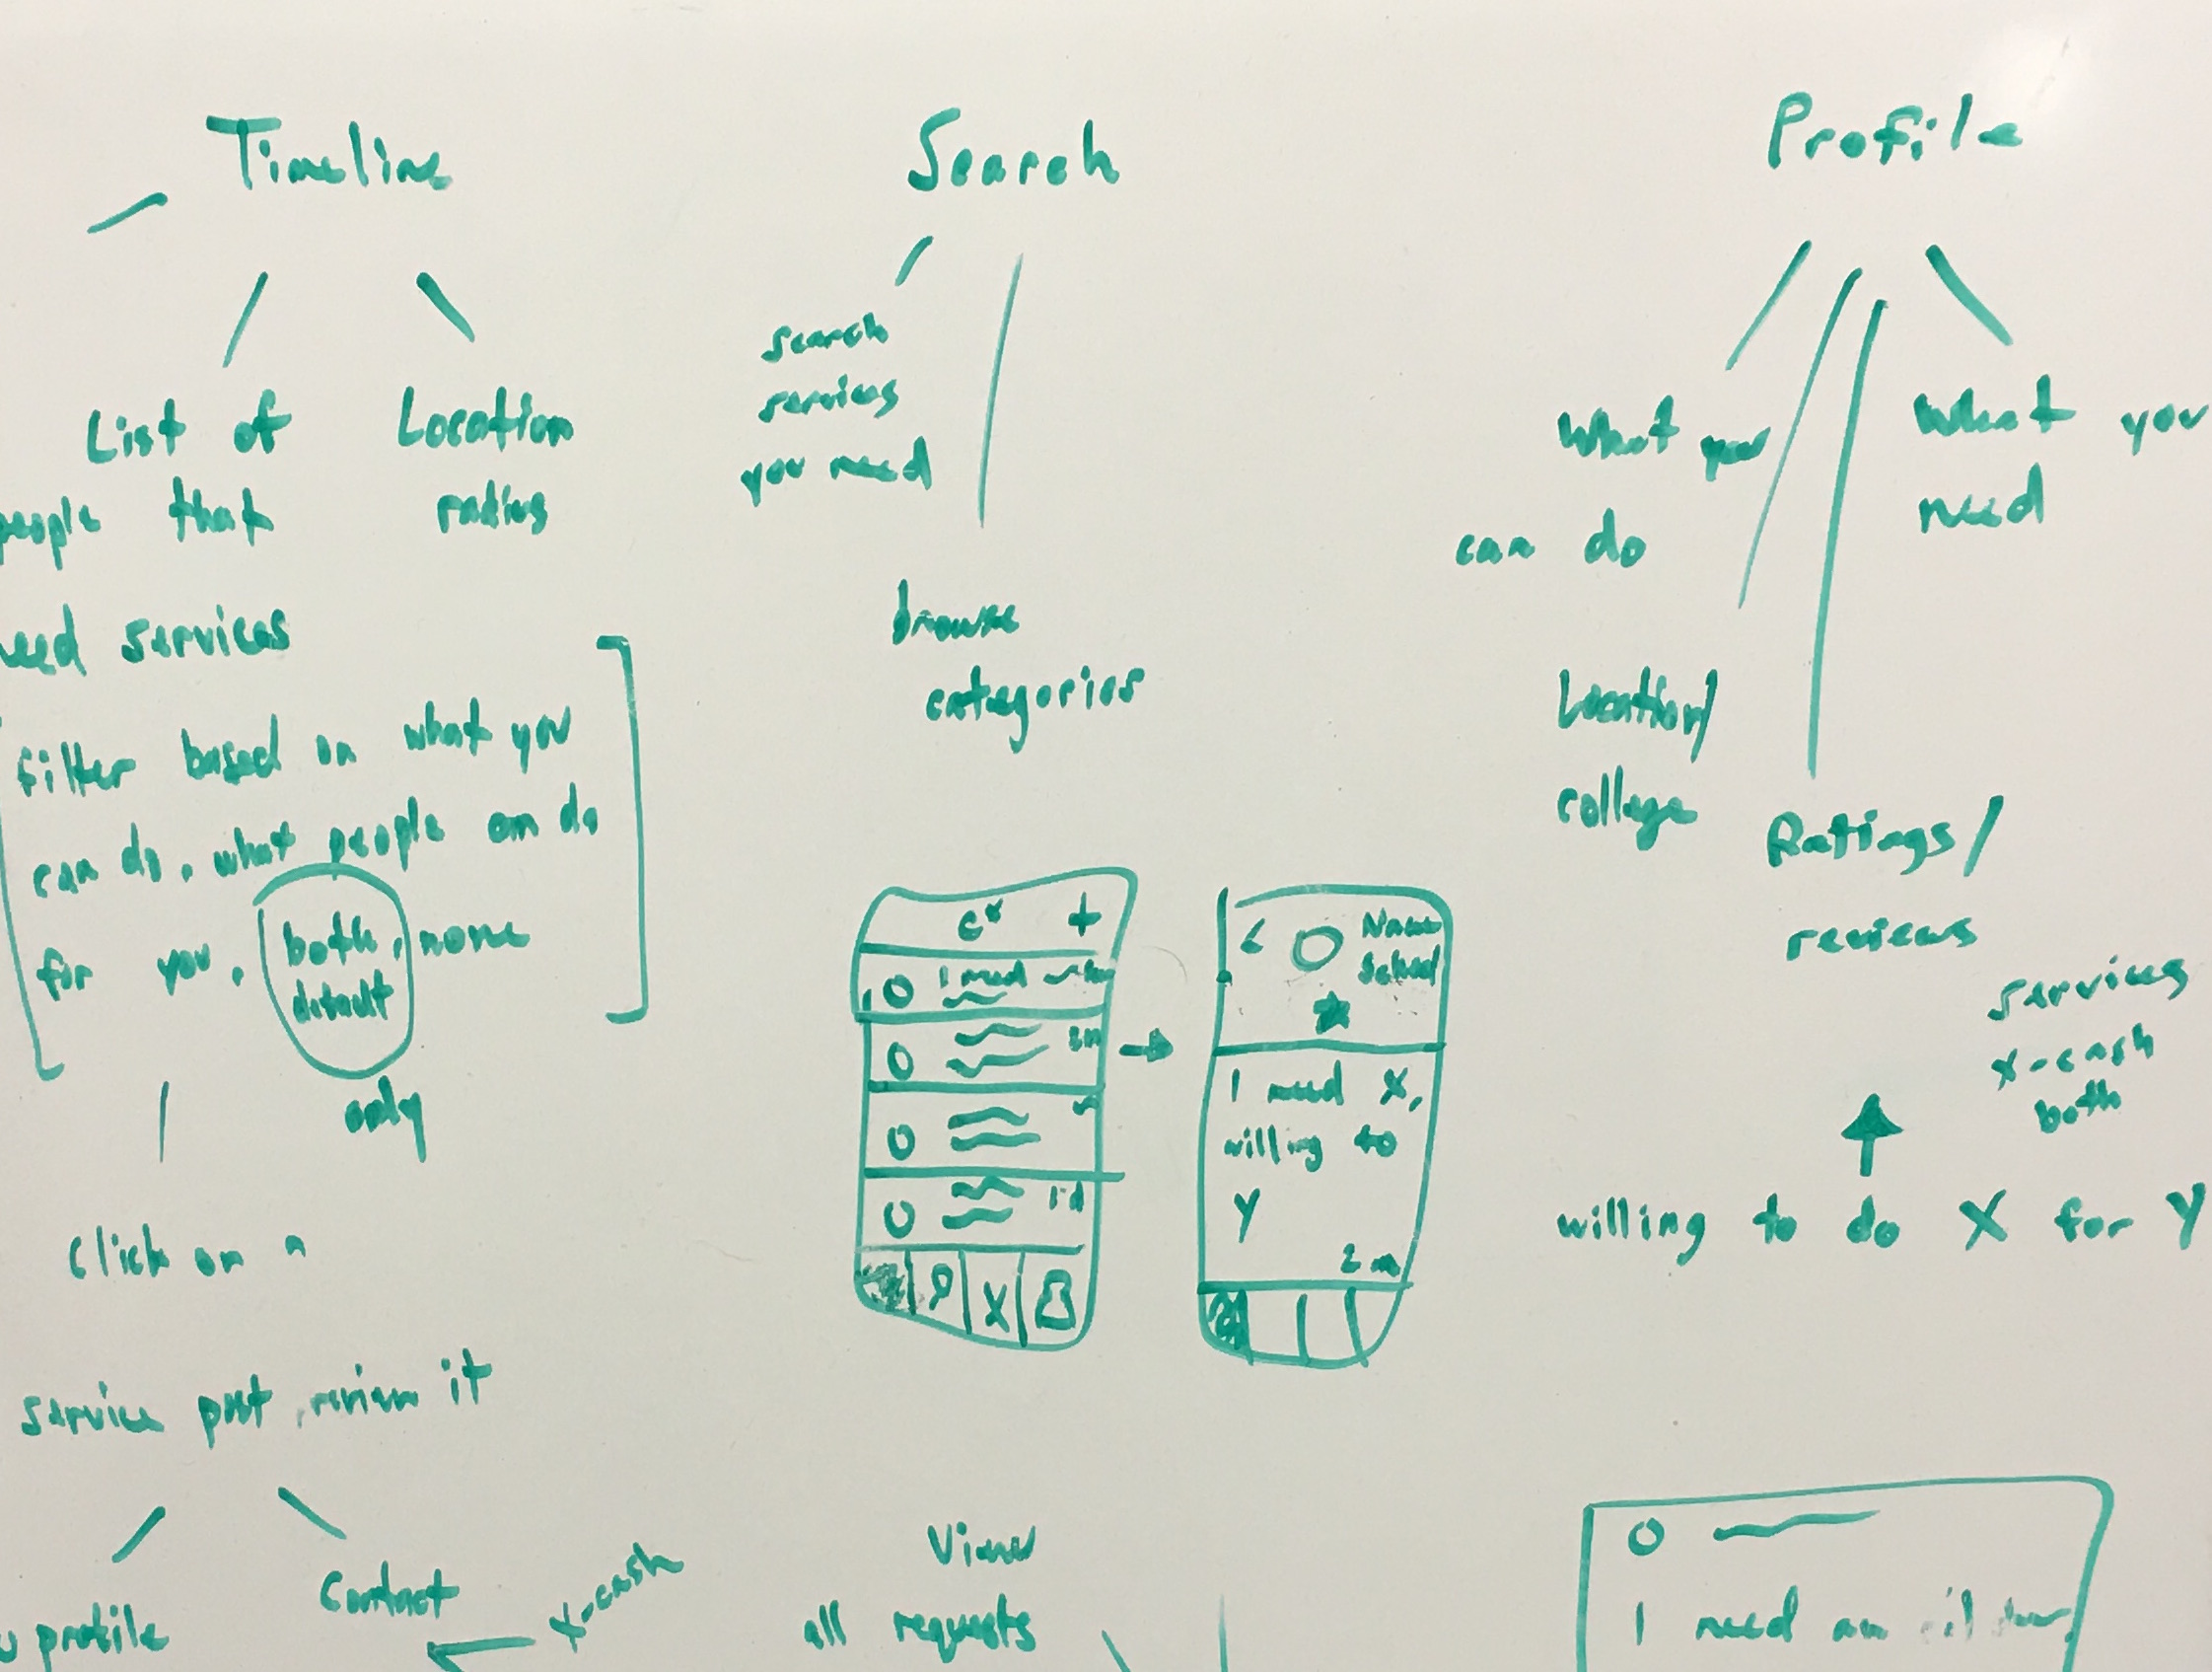 Timeline
List of
people that
need services
Location
radius
filter based on what you
can do, what people can do
for you, both, none
default
only
Click on a
service post, review it
profile
Contact
x-cash
Search
search
services
you need
browse
categories
+
I need
2m
1d
X
<
Name
School
I need X,
willing to
Y
2m
View
all requests
Profile
What you
can do
Location/
college
Ratings/
reviews
What you
need
services
x-cash
both
willing to do X for Y
I need an